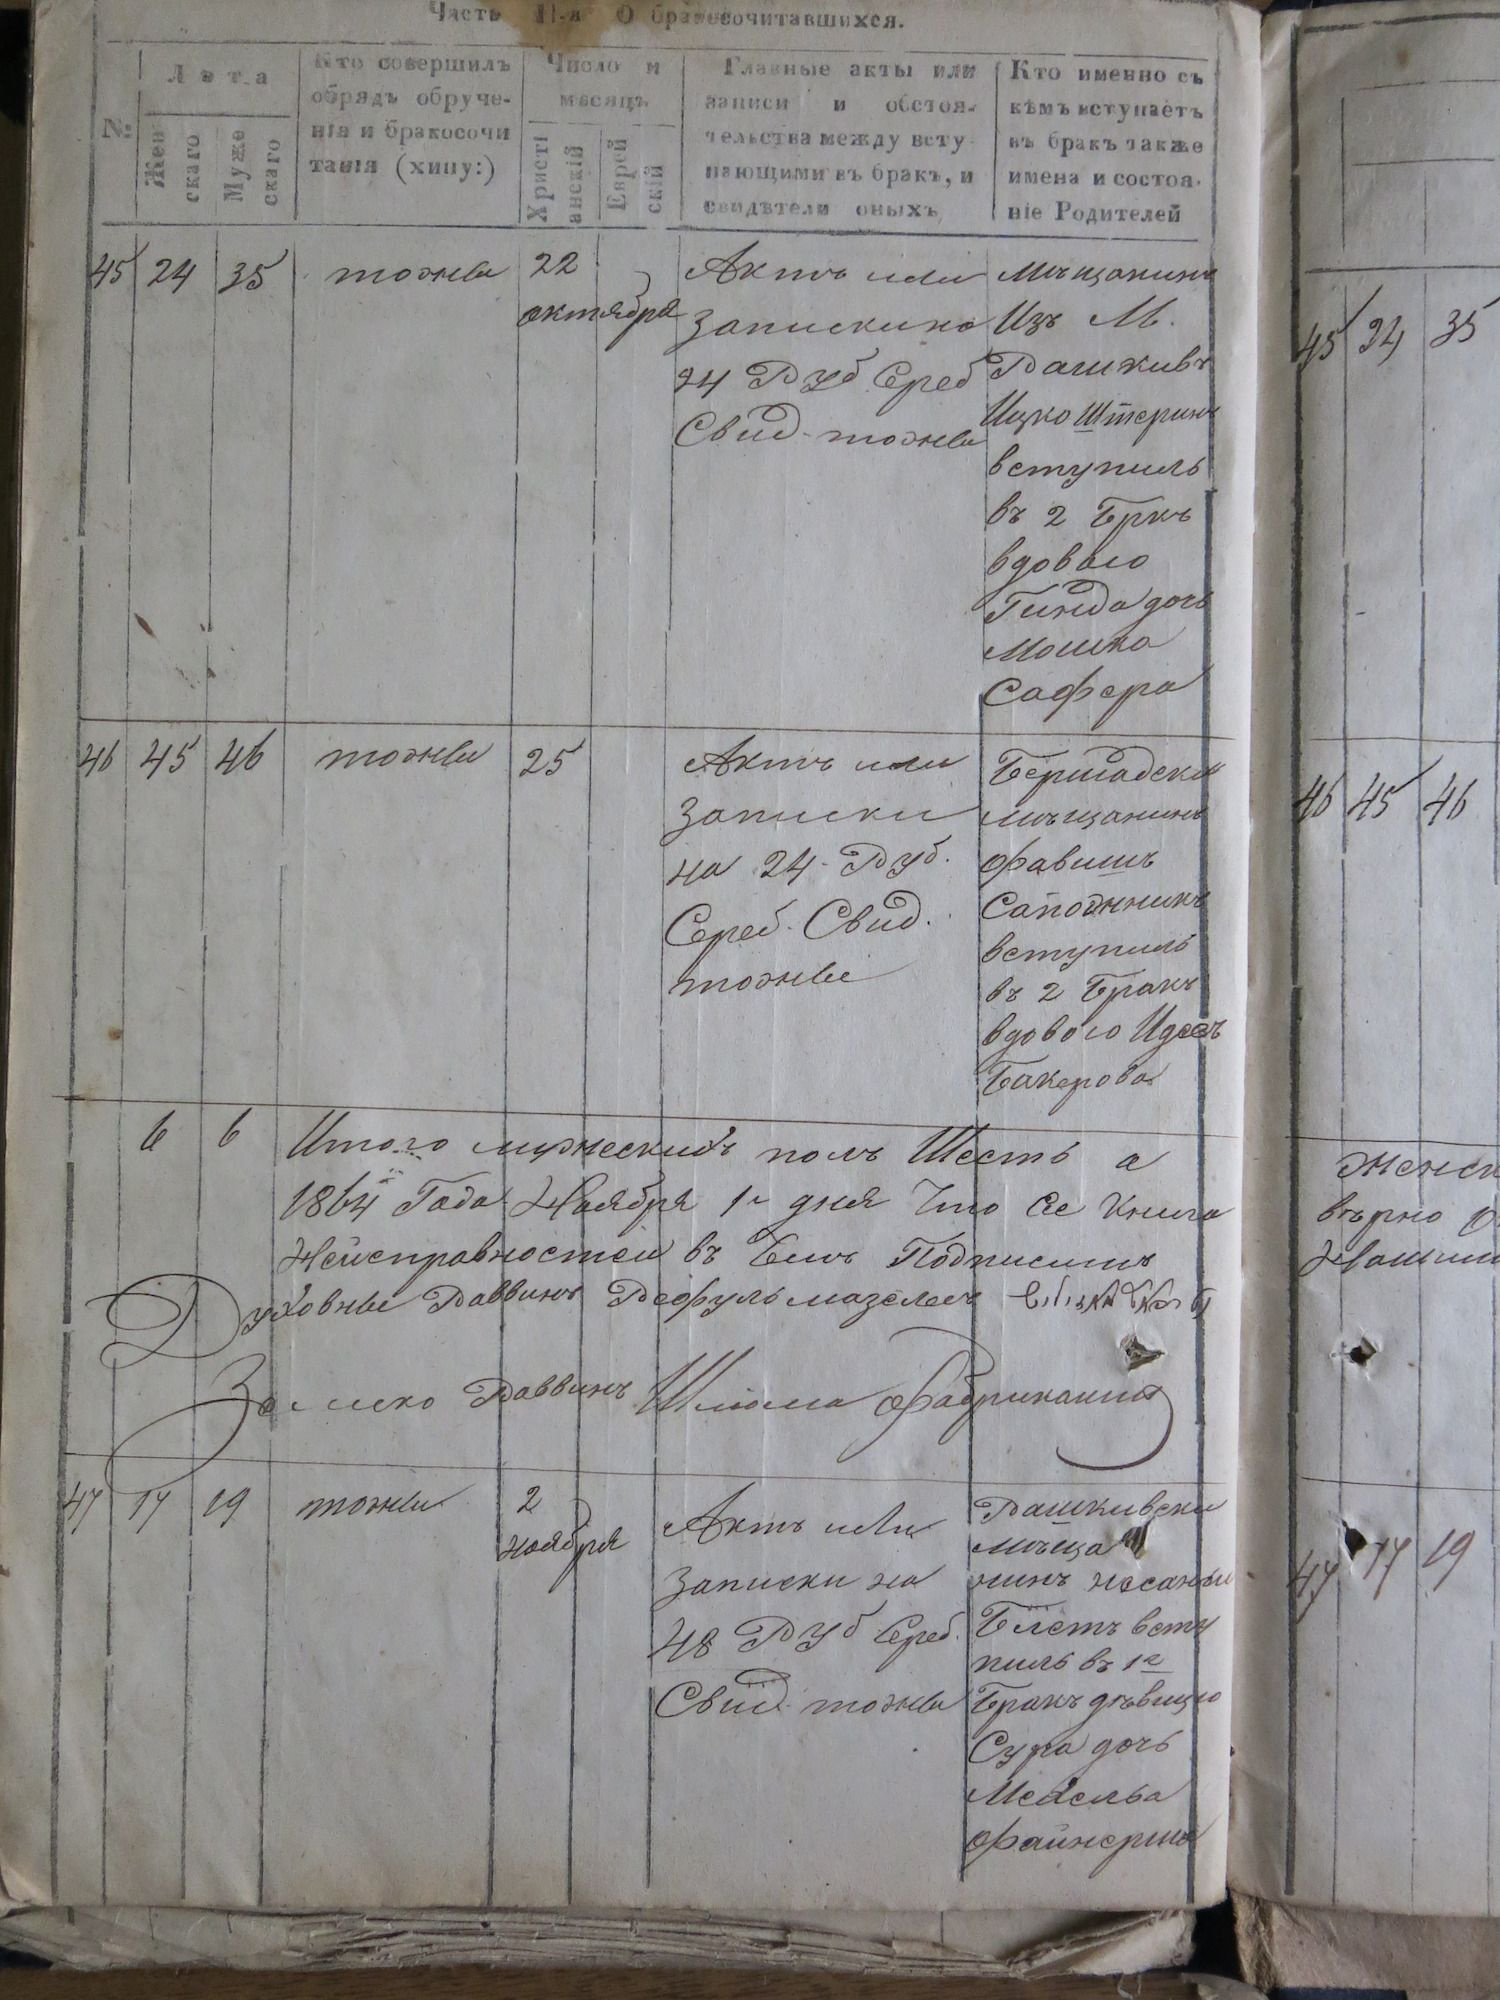 Часть II-я О бракосочитавшихся.
№
Лѣта
Жен скаго
Муже скаго
Кто совершилъ обрядъ обруче- нія и бракосочи танія (хипу:)
Число и мѣсяцъ
Христі анскій
Еврей скій
Главные акты или записи и обстоя- тельства между всту пающими въ бракъ, и свидѣтели оныхъ
Кто именно съ кѣмъ вступаетъ въ бракъ также имена и состоя- ніе Родителей
45 24 35 тожъ 22 октября
Актъ или
записки на
24 Руб Сереб
Свид. тожъ
мѣщанинъ
Изъ М.
Рашкивъ
Ицко Штеринъ
вступилъ
въ 2 Бркъ
вдового
Гинда дочь
Мошка
Сафера
46 45 46 тожъ 25
Актъ или
записки
на 24 Руб.
Сереб. Свид.
тожъ
Бершадски
мѣщанинъ
Фавишъ
Сапожникъ
вступилъ
въ 2 Бракъ
вдового Идесъ
Бакерова
6 6 Итого мужескихъ полъ Шесть а
1864 Года Ноября 1г дня Что Сіе Книга
Неисправностей въ Ёмъ Подписимъ
Духовные Раввинъ Рефуль
За Раввинъ Шлиома Фабрикантъ
47 17 19 тожъ 2 ноября
Актъ или
записки на
48 Руб Сереб.
Свид. тожъ
Рашкивски
мѣща
нинъ
всту
пилъ въ 1й
Бракъ дѣвицю
Сура дочь
Файнериа
45 24 35
46 45 46
вѣрно
47 17 19